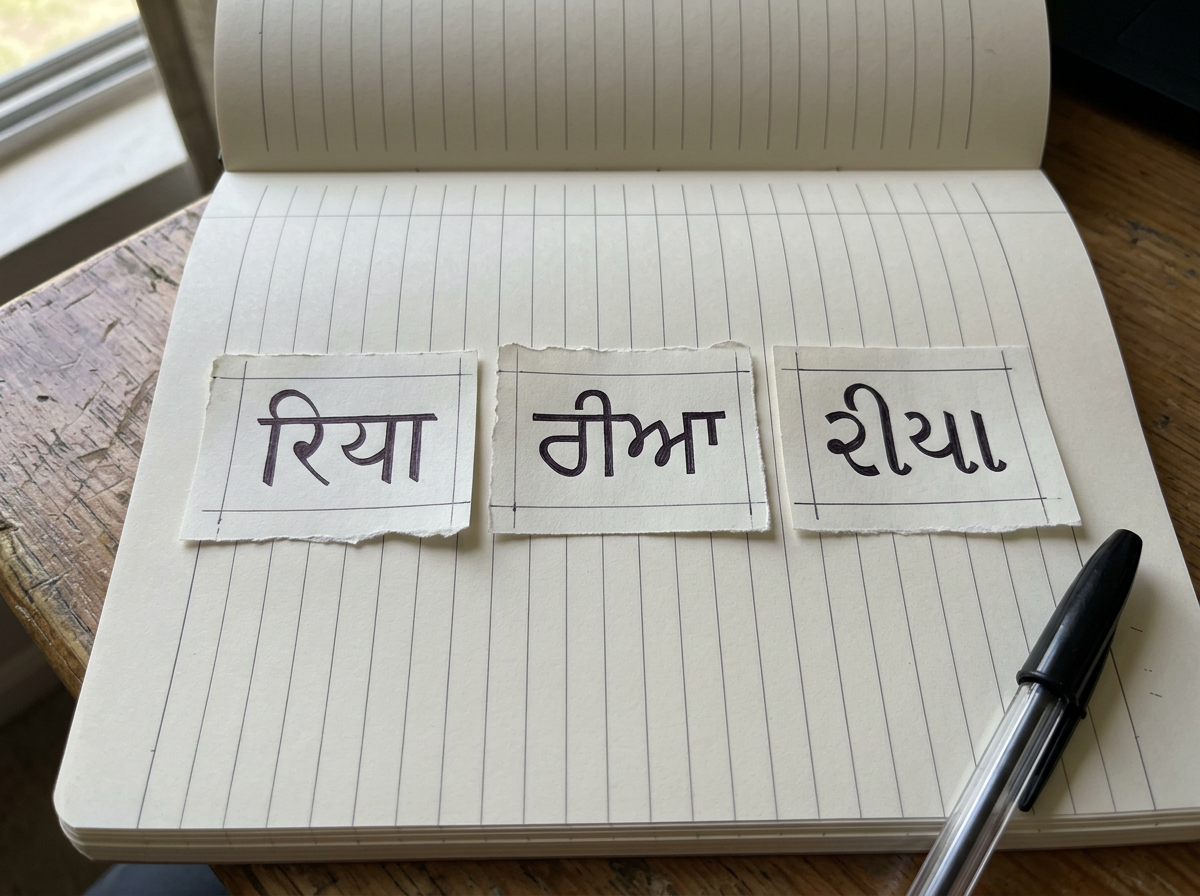 रिया ਰੀਆ રીયા